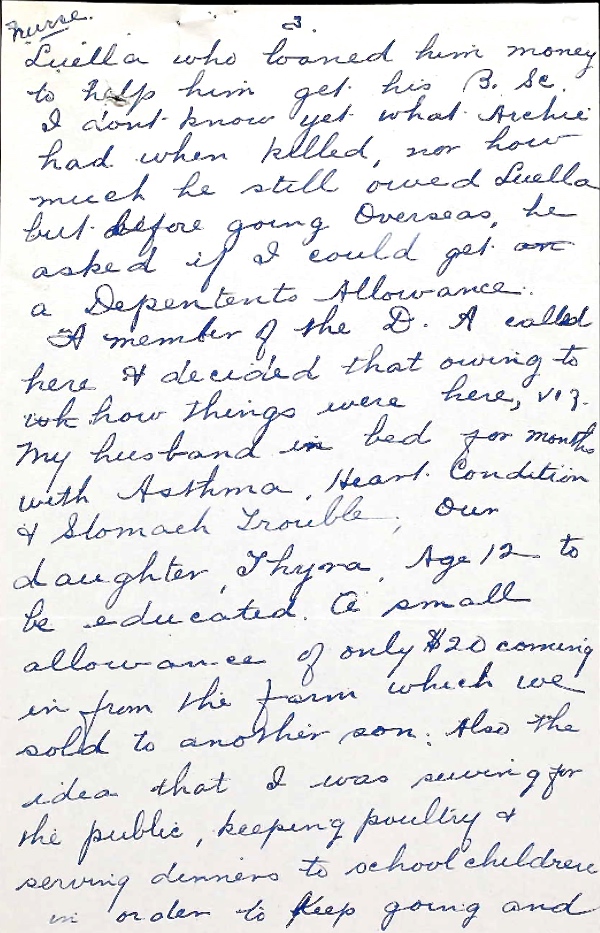 Nurse.
3.
Luella who loaned him money
to help him get his B. Sc.
I dont know yet what Archie
had when killed, nor how
much he still owed Luella
but before going Overseas, he
asked if I could get an
a Depentents Allowance.
A member of the D. A called
here & decided that owing to
how things were here, viz.
My husband in bed for months
with Asthma, Heart Condition
& Stomach Trouble, Our
daughter, Thyra, Age 12 to
be educated. A small
allowance of only $20 coming
in from the farm which we
sold to another son. Also the
idea that I was sewing for
the public, keeping poultry &
serving dinners to school children
in order to keep going and